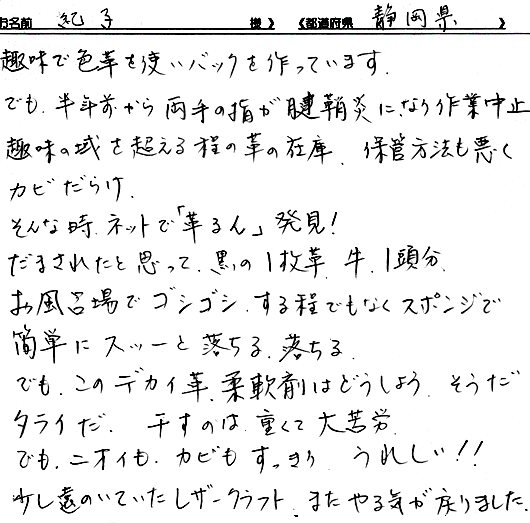 お名前 紀子 様 》 《都道府県 静岡県 》
趣味で色革を使いバックを作っています.
でも、半年前から両手の指が腱鞘炎になり作業中止
趣味の域を超える程の革の在庫、保管方法も悪く
カビだらけ.
そんな時.ネットで「革るん」発見!
だまされたと思って、黒の1枚革、牛、1頭分.
お風呂場でゴシゴシ、する程でもなくスポンジで
簡単にスッーと落ちる、落ちる.
でも、このデカイ革、柔軟剤はどうしよう そうだ
タライだ. 干すのは、重くて大苦労.
でも、ニオイも、カビもすっきり うれしい!!
少し遠のいていたレザークラフト、またやる気が戻りました.